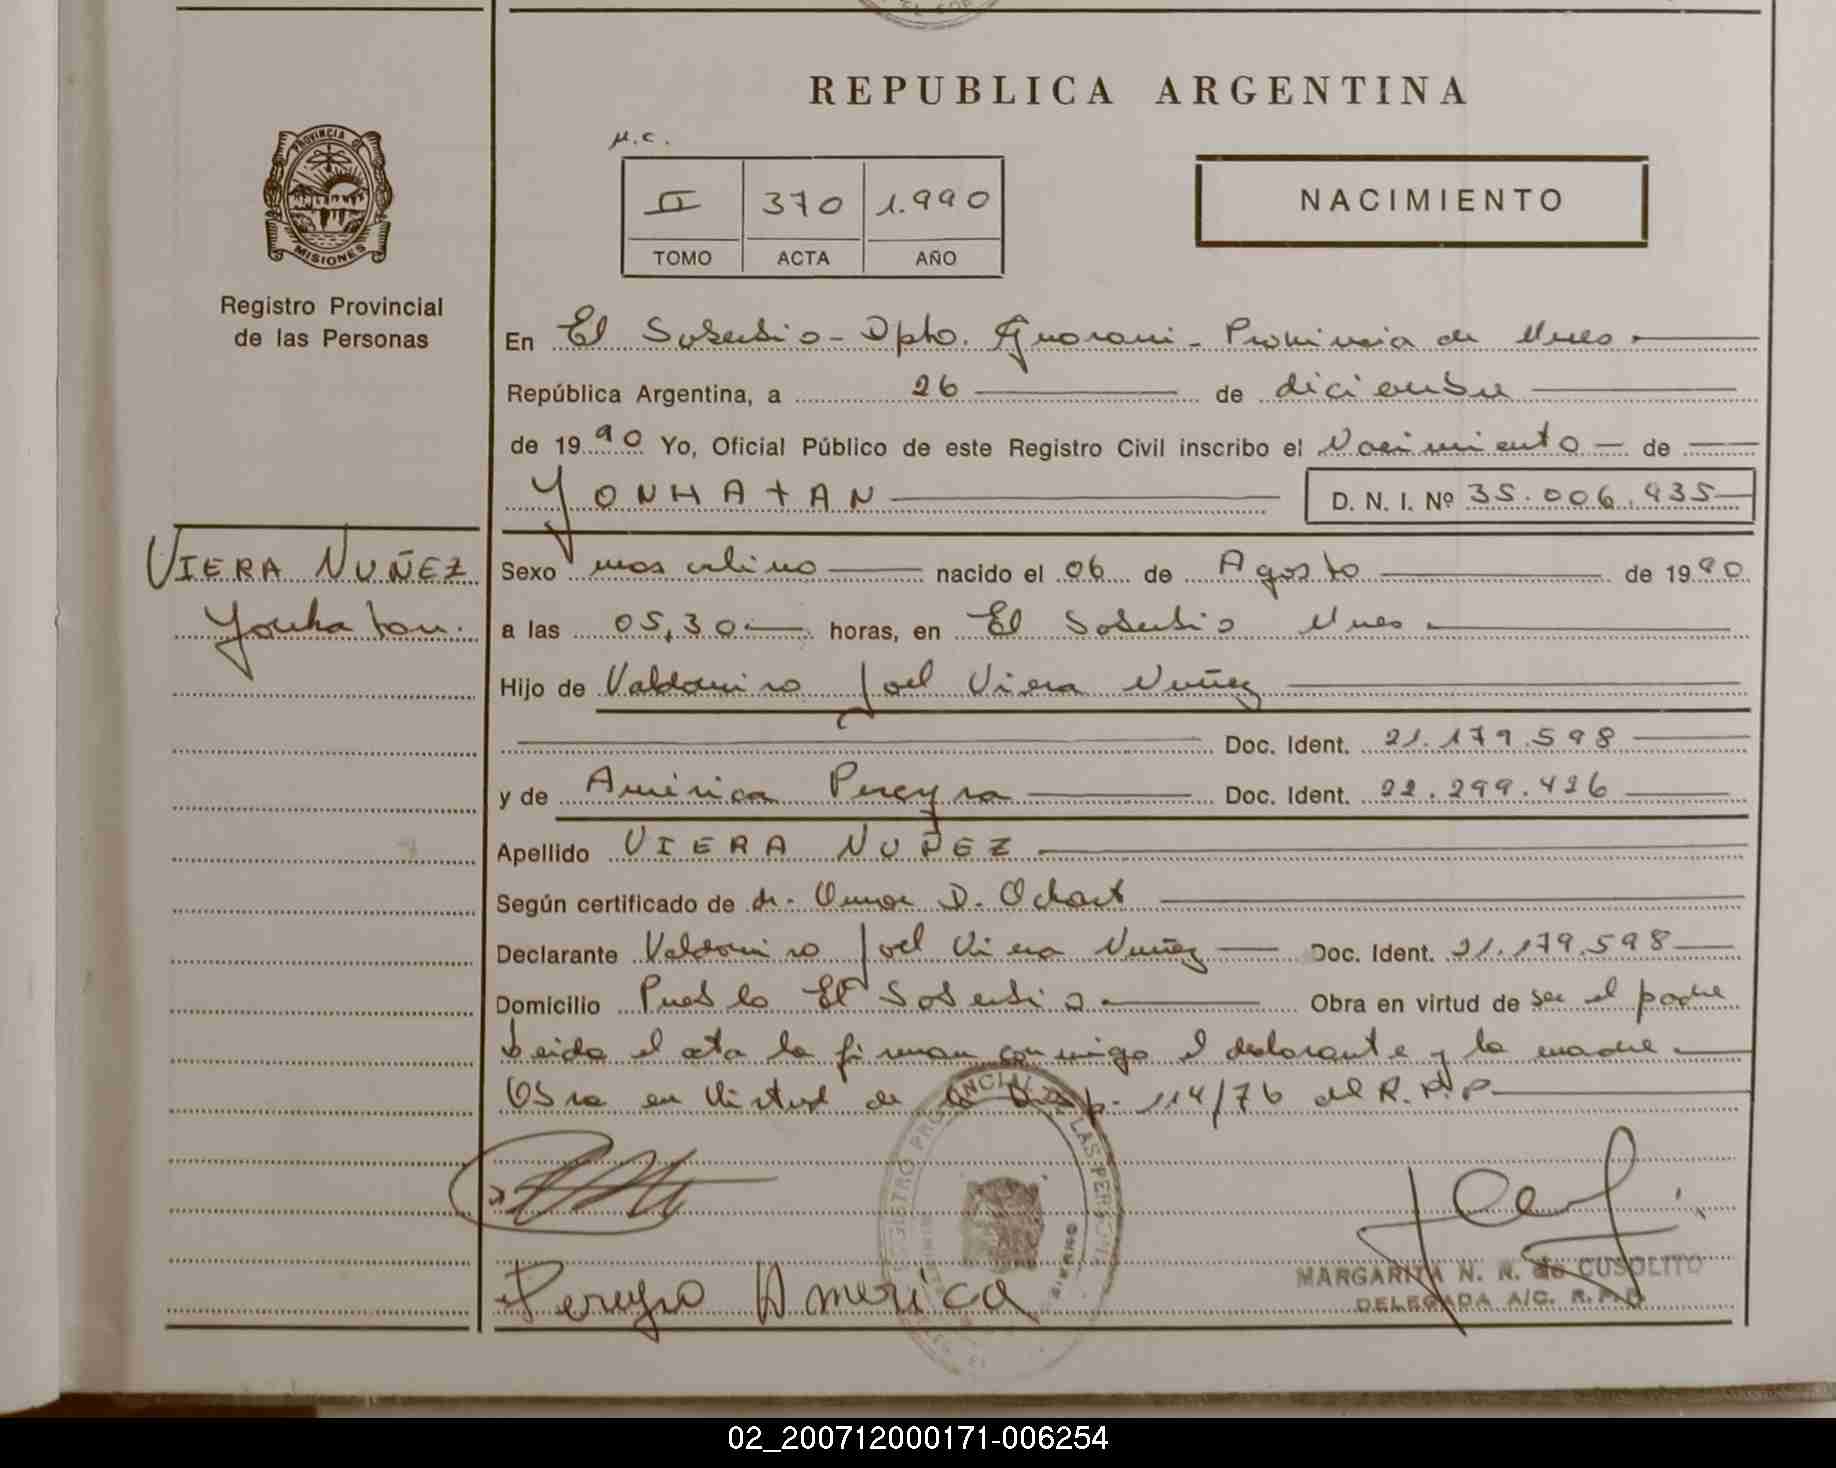 REPUBLICA ARGENTINA
PROVINCIA DE
MISIONES
Registro Provincial
de las Personas
M.C.
II 370 1.990
TOMO ACTA AÑO
NACIMIENTO
En El Soberbio - Dpto. Guarani - Provincia de Mnes.
República Argentina, a 26 de diciembre
de 1990 Yo, Oficial Público de este Registro Civil inscribo el Nacimiento de
YONHATAN D. N. I. Nº 35.006.935
VIERA NUÑEZ
Yonhatan.
Sexo masculino nacido el 06 de Agosto de 1990
a las 05,30 horas, en El Soberbio Mnes
Hijo de Valdomiro Joel Viera Nuñez
Doc. Ident. 21.179.598
y de América Pereyra Doc. Ident. 22.299.426
Apellido VIERA NUÑEZ
Según certificado de dr. Omar D. Ochart
Declarante Valdomiro Joel Viera Nuñez Doc. Ident. 21.179.598
Domicilio Pueblo El Soberbio Obra en virtud de ser el padre
Leida el acta la firman conmigo el declarante y la madre
Obra en Virtud de la Disp. 114/76 del R.P.P.
REGISTRO PROVINCIAL DE LAS PERSONAS
Pereyra América
MARGARITA N. R. de CUSOLITO
DELEGADA A/C. R.P.P.
02_200712000171-006254